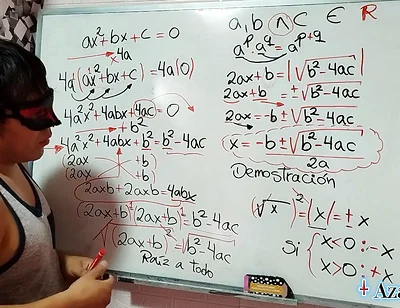 ax² + bx + c = 0
x 4a
4a(ax² + bx + c) = 4a(0)
4a²x² + 4abx + 4ac = 0
+ b²
4a²x² + 4abx + b² = b² - 4ac
(2ax + b)
(2ax + b)
2axb + 2axb = 4abx
(2ax + b)¹(2ax + b)¹ = b² - 4ac
√(2ax + b)² = √b² - 4ac
Raíz a todo
a, b ∧ C ∈ R
aᵖ·a^q = a^(p+q)
2ax + b = |√b² - 4ac|
2ax + b = ±√b² - 4ac
2ax = -b ± √b² - 4ac
x = -b ± √b² - 4ac / 2a
Demostración
(√x)² = |x| = ± x
Si { x < 0 : - x
x > 0 : + x
+ Aza